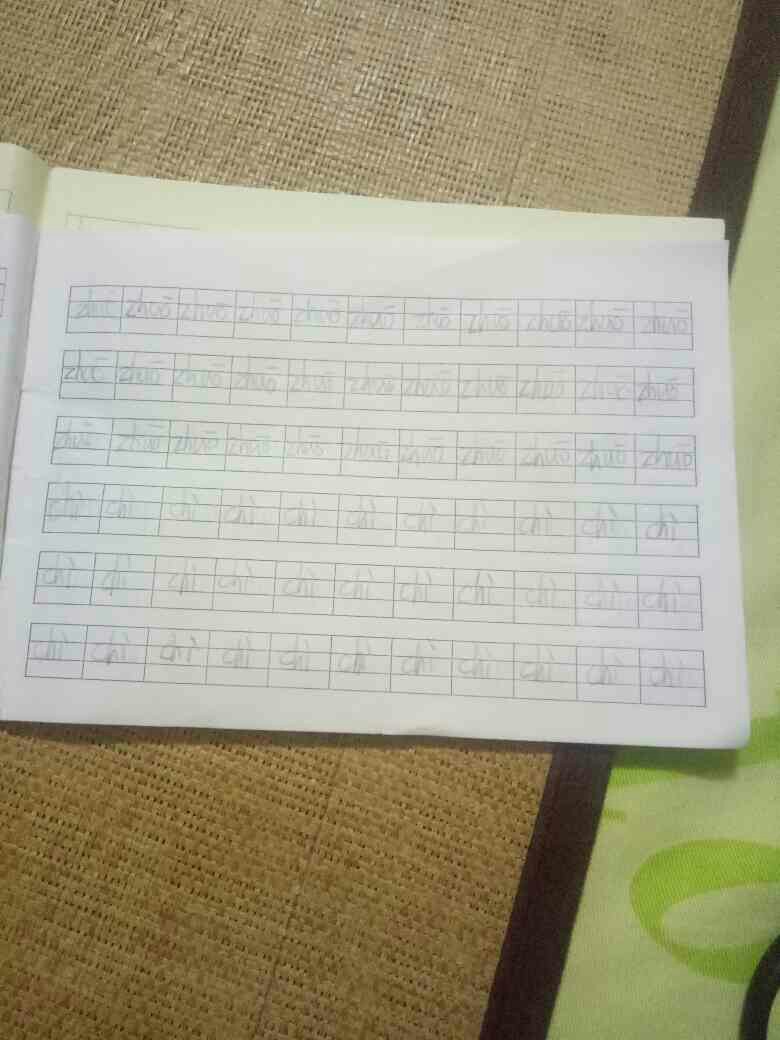 zhuō zhuō zhuō zhuō zhuō zhuō zhuō zhuō zhuō zhuō zhuō
zhuō zhuō zhuō zhuō zhuō zhuō zhuō zhuō zhuō zhuō zhuō
zhuō zhuō zhuō zhuō zhuō zhuō zhuō zhuō zhuō zhuō zhuō
chì chì chì chì chì chì chì chì chì chì chì
chì chì chì chì chì chì chì chì chì chì chì
chì chì chì chì chì chì chì chì chì chì chì